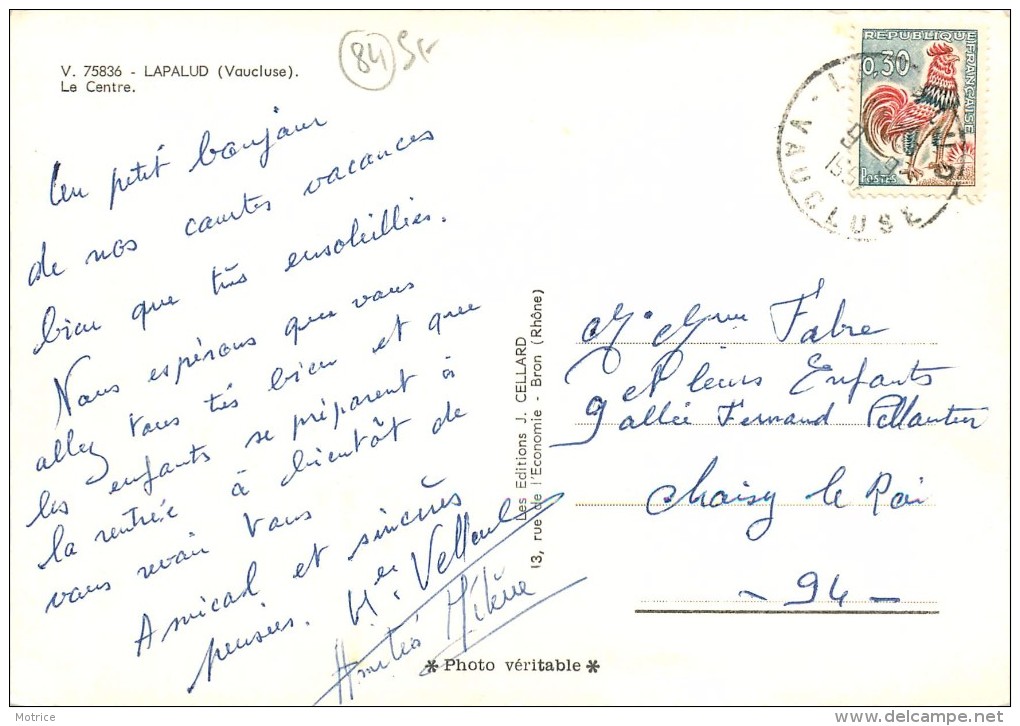 V. 75836 - LAPALUD (Vaucluse).
Le Centre.
84
RÉPUBLIQUE FRANÇAISE
0,30
POSTES
VAUCLUSE
Un petit bonjour
de nos courtes vacances
bien que très ensoleillées.
Nous espérons que vous
allez tous très bien et que
les enfants se préparent à
la rentrée à bientôt de
vous revoir tous
Amical et sincères
pensées.
Amitiés Hélène
Les Editions J. CELLARD
13, rue de l'Economie - Bron (Rhône)
Fabre
et leurs Enfants
9 allée Fernand Pellantier
Choisy le Roi
- 94 -
* Photo véritable *
Motrice
delcampe.net